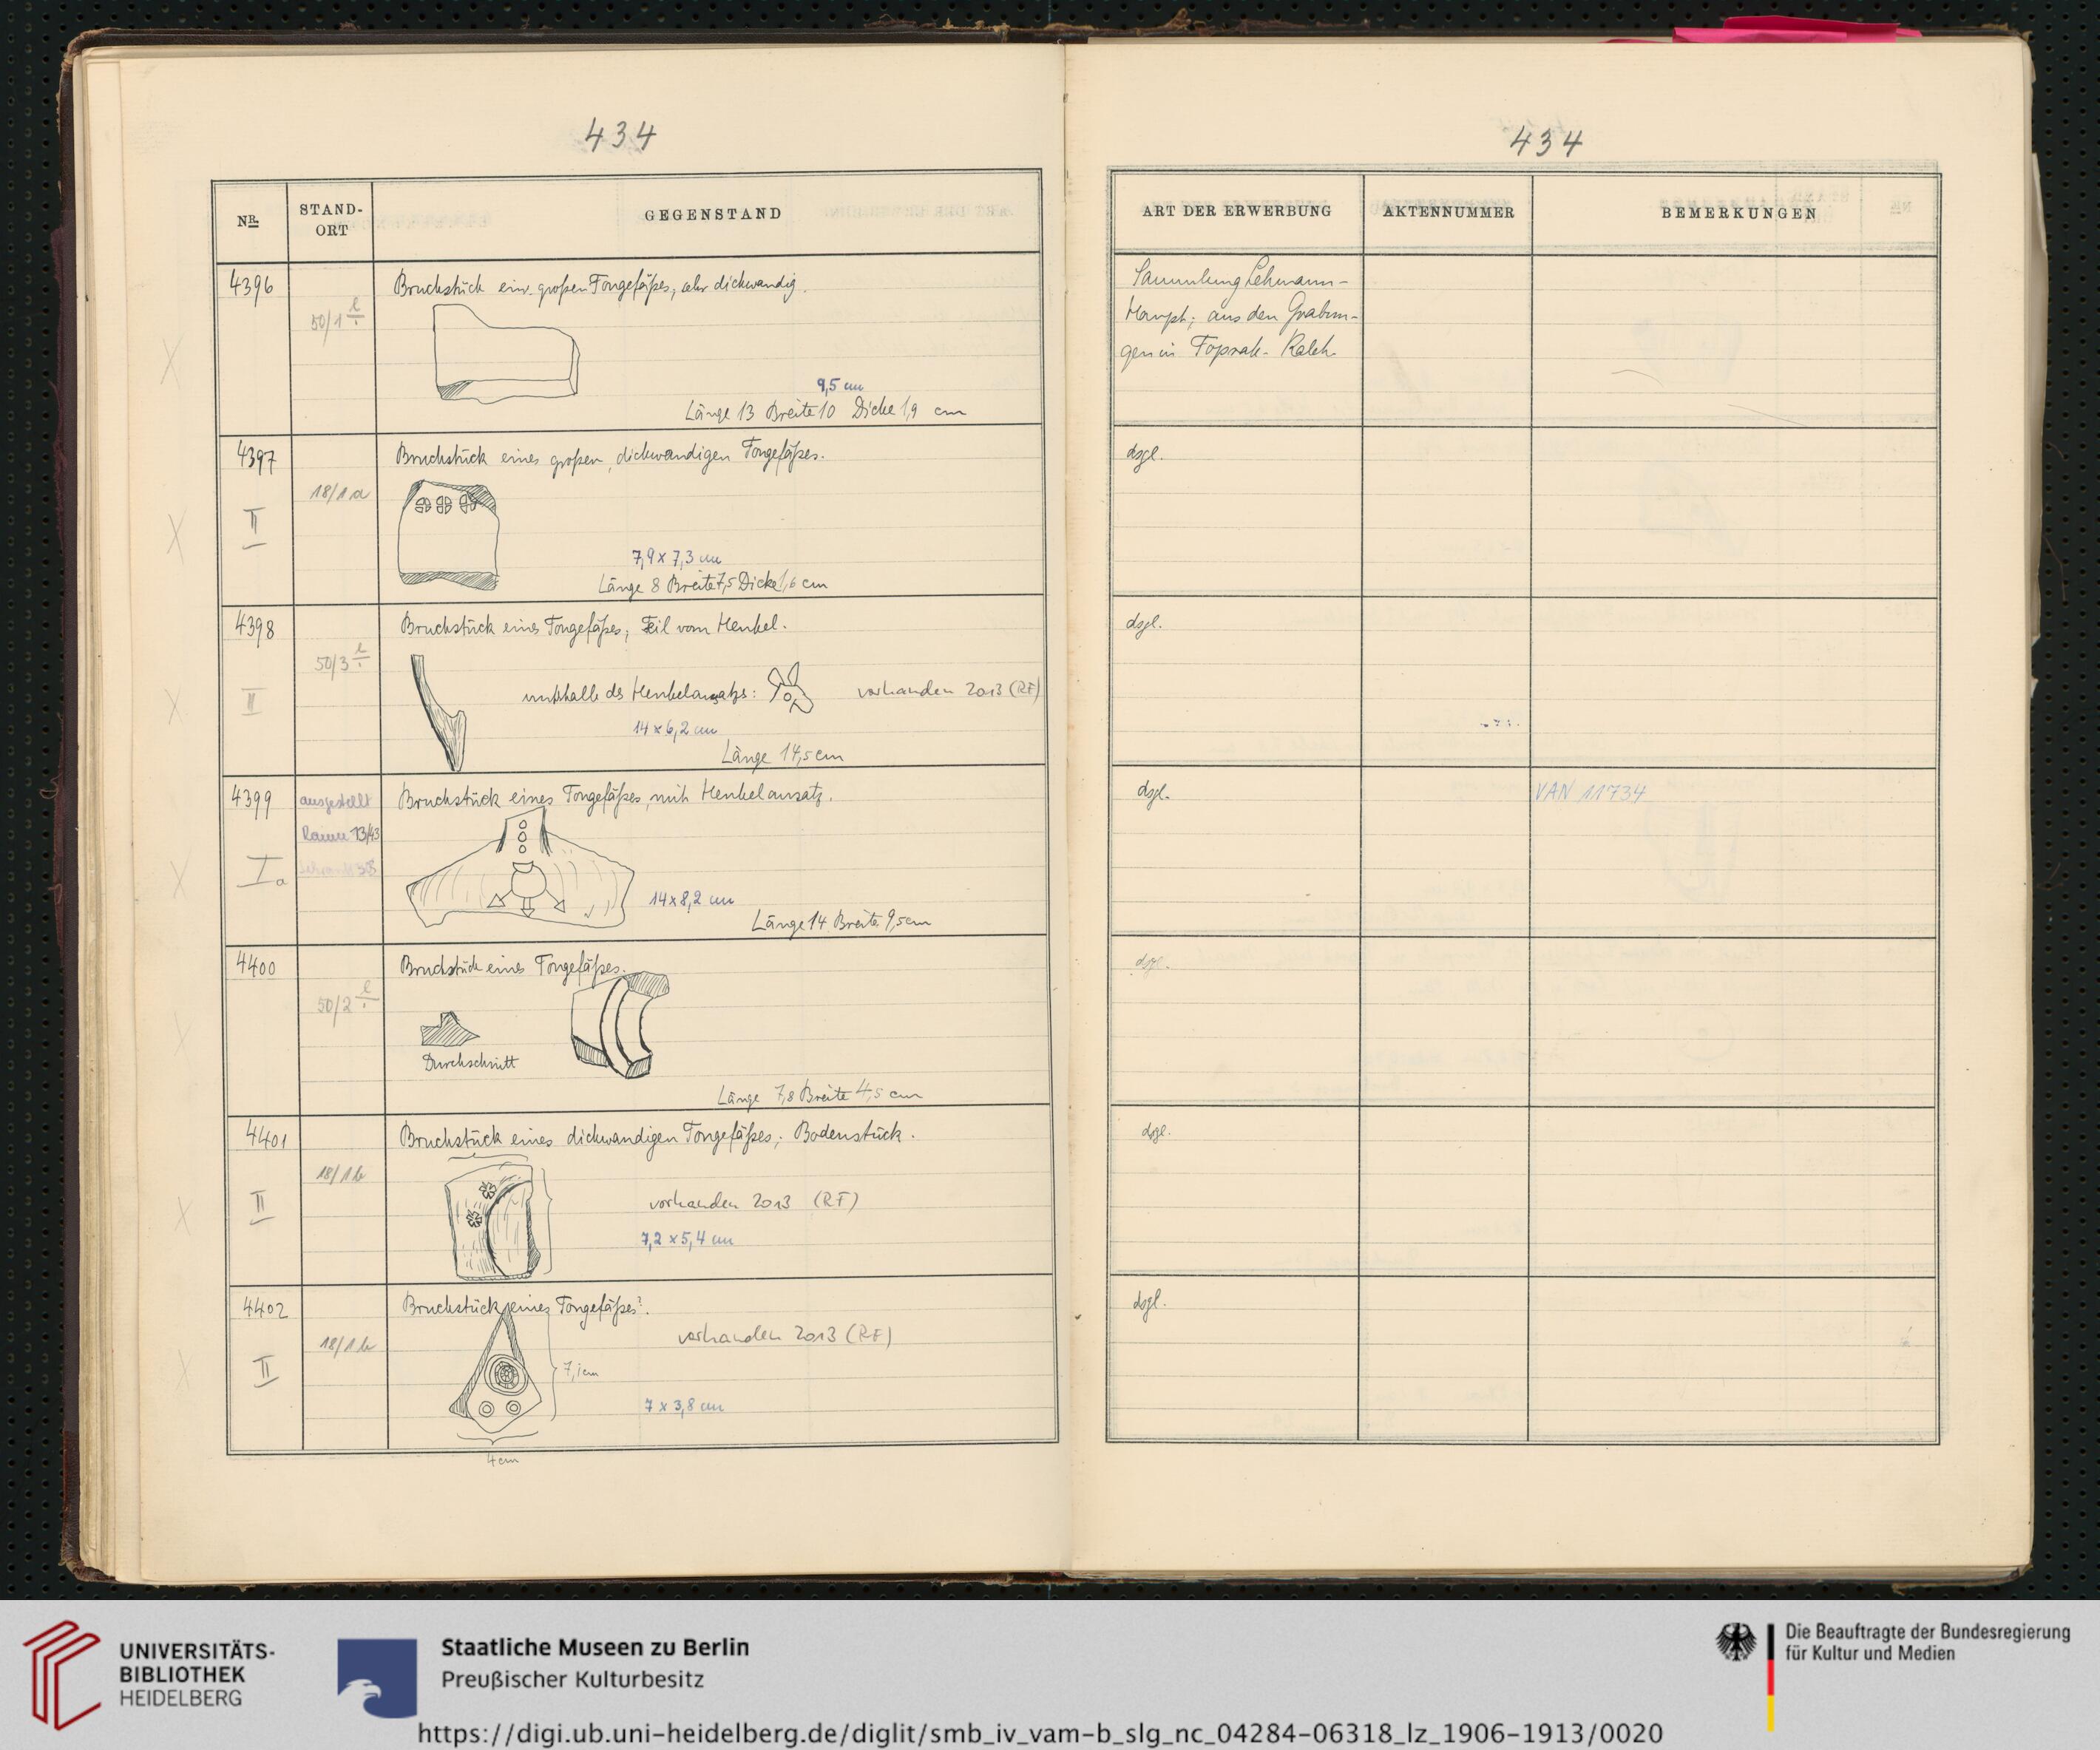 434
NR.
STAND-
ORT
GEGENSTAND
4396
50/1
Bruchstück ein. großen Tongefäßes, sehr dickwandig.
9,5 cm
Länge 13 Breite 10 Dicke 1,9 cm
4397
II
18/1a
Bruchstück eines großen, dickwandigen Tongefäßes.
7,9 x 7,3 cm
Länge 8 Breite 7,5 Dicke 1,6 cm
4398
II
50/3
Bruchstück eines Tongefäßes, Teil vom Henkel.
unterhalb des Henkelansatzes:
vorhanden 2013 (RF)
14 x 6,2 cm
Länge 14,5 cm
4399
Ia
ausgestellt
Raum 13/43
Bruchstück eines Tongefäßes, mit Henkelansatz.
14 x 8,2 cm
Länge 14 Breite 9,5 cm
4400
50/2
Bruchstück eines Tongefäßes.
Durchschnitt
Länge 7,8 Breite 4,5 cm
4401
II
18/1b
Bruchstück eines dickwandigen Tongefäßes; Bodenstück.
vorhanden 2013 (RF)
7,2 x 5,4 cm
4402
II
18/1b
Bruchstück eines Tongefäßes?.
vorhanden 2013 (RF)
7,1cm
7 x 3,8 cm
4cm
434
ART DER ERWERBUNG
AKTENNUMMER
BEMERKUNGEN
Sammlung Lehmann-
Haupt; aus den Grabun-
gen in Toprak-Kaleh
dsgl.
dsgl.
dsgl.
VAN 11734
dsgl.
dsgl.
dsgl.
UNIVERSITÄTS-
BIBLIOTHEK
HEIDELBERG
Staatliche Museen zu Berlin
Preußischer Kulturbesitz
Die Beauftragte der Bundesregierung
für Kultur und Medien
https://digi.ub.uni-heidelberg.de/diglit/smb_iv_vam-b_slg_nc_04284-06318_lz_1906-1913/0020